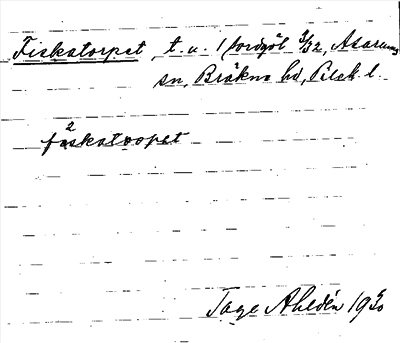 Fiskatorpet, t. u. 1 Fordgöl 3/32, Asarums
sn, Bräkne hd, Blek. l.
fiskatorpet
Tage Ahldén 1930